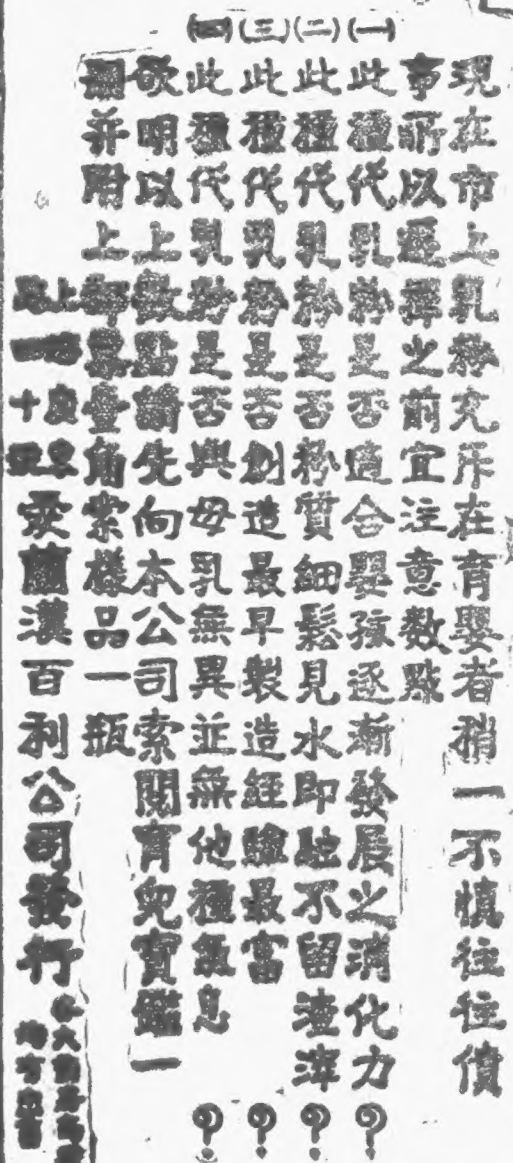 現在市上乳粉充斥在育嬰者稍一不慎往往僨
事所以選擇之前宜注意數點
(一)此種代乳粉是否適合嬰孩逐漸發展之消化力?
(二)此種代乳粉是否粉質細鬆見水即融不留渣滓?
(三)此種代乳粉是否創造最早製造經驗最富?
(四)此種代乳粉是否與母乳無異並無他種氣息?
欲明以上數點請先向本公司索閱育兒寶鑑一
冊并附上郵票壹角索樣品一瓶
上海
路一四十號
愛蘭漢百利公司發行
各大藥房
均有出售